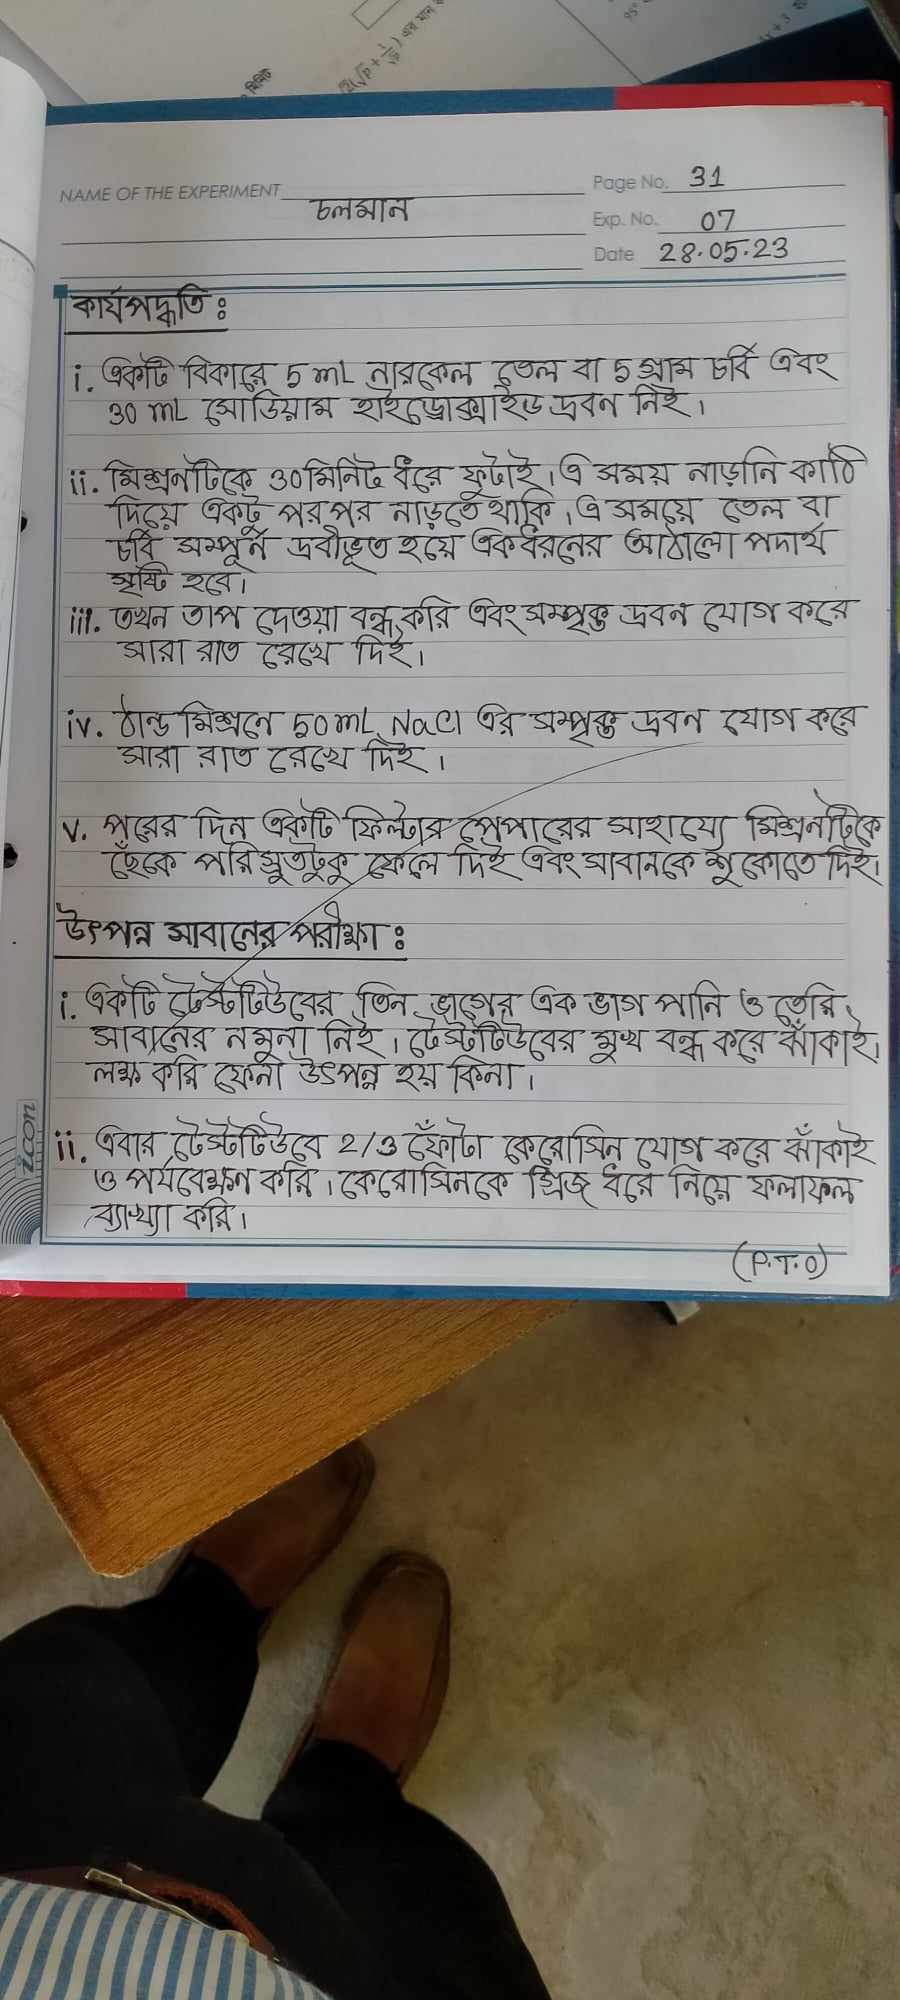 NAME OF THE EXPERIMENT চলমান
Page No. 31
Exp. No. 07
Date 28.05.23
কার্যপদ্ধতি ঃ
i. একটি বিকারে 5 mL নারকেল তেল বা 5 গ্রাম চর্বি এবং
30 mL সোডিয়াম হাইড্রোক্সাইড দ্রবন নিই।
ii. মিশ্রনটিকে 30 মিনিট ধরে ফুটাই। এ সময় নাড়ানি কাঠি
দিয়ে একটু পর পর নাড়তে থাকি। এ সময়ে তেল বা
চর্বি সম্পূর্ন দ্রবীভূত হয়ে একধরনের আঠালো পদার্থ
সৃষ্টি হবে।
iii. তখন তাপ দেওয়া বন্ধ করি এবং সম্পৃক্ত দ্রবন যোগ করে
সারা রাত রেখে দিই।
iv. ঠান্ড মিশ্রনে 50 mL NaCl এর সম্পৃক্ত দ্রবন যোগ করে
সারা রাত রেখে দিই।
v. পরের দিন একটি ফিল্টার পেপারের সাহায্যে মিশ্রনটিকে
ছেঁকে পরিস্রুতটুকু ফেলে দিই এবং সাবানকে শুকোতে দিই।
উৎপন্ন সাবানের পরীক্ষা ঃ
i. একটি টেস্টটিউবের তিন ভাগের এক ভাগ পানি ও তৈরি
সাবানের নমুনা নিই। টেস্টটিউবের মুখ বন্ধ করে ঝাঁকাই।
লক্ষ করি ফেনা উৎপন্ন হয় কিনা।
ii. এবার টেস্টটিউবে 2/3 ফোঁটা কেরোসিন যোগ করে ঝাঁকাই
ও পর্যবেক্ষন করি। কেরোসিনকে গ্রিজ ধরে নিয়ে ফলাফল
ব্যাখ্যা করি।
(P.T.O)
icon